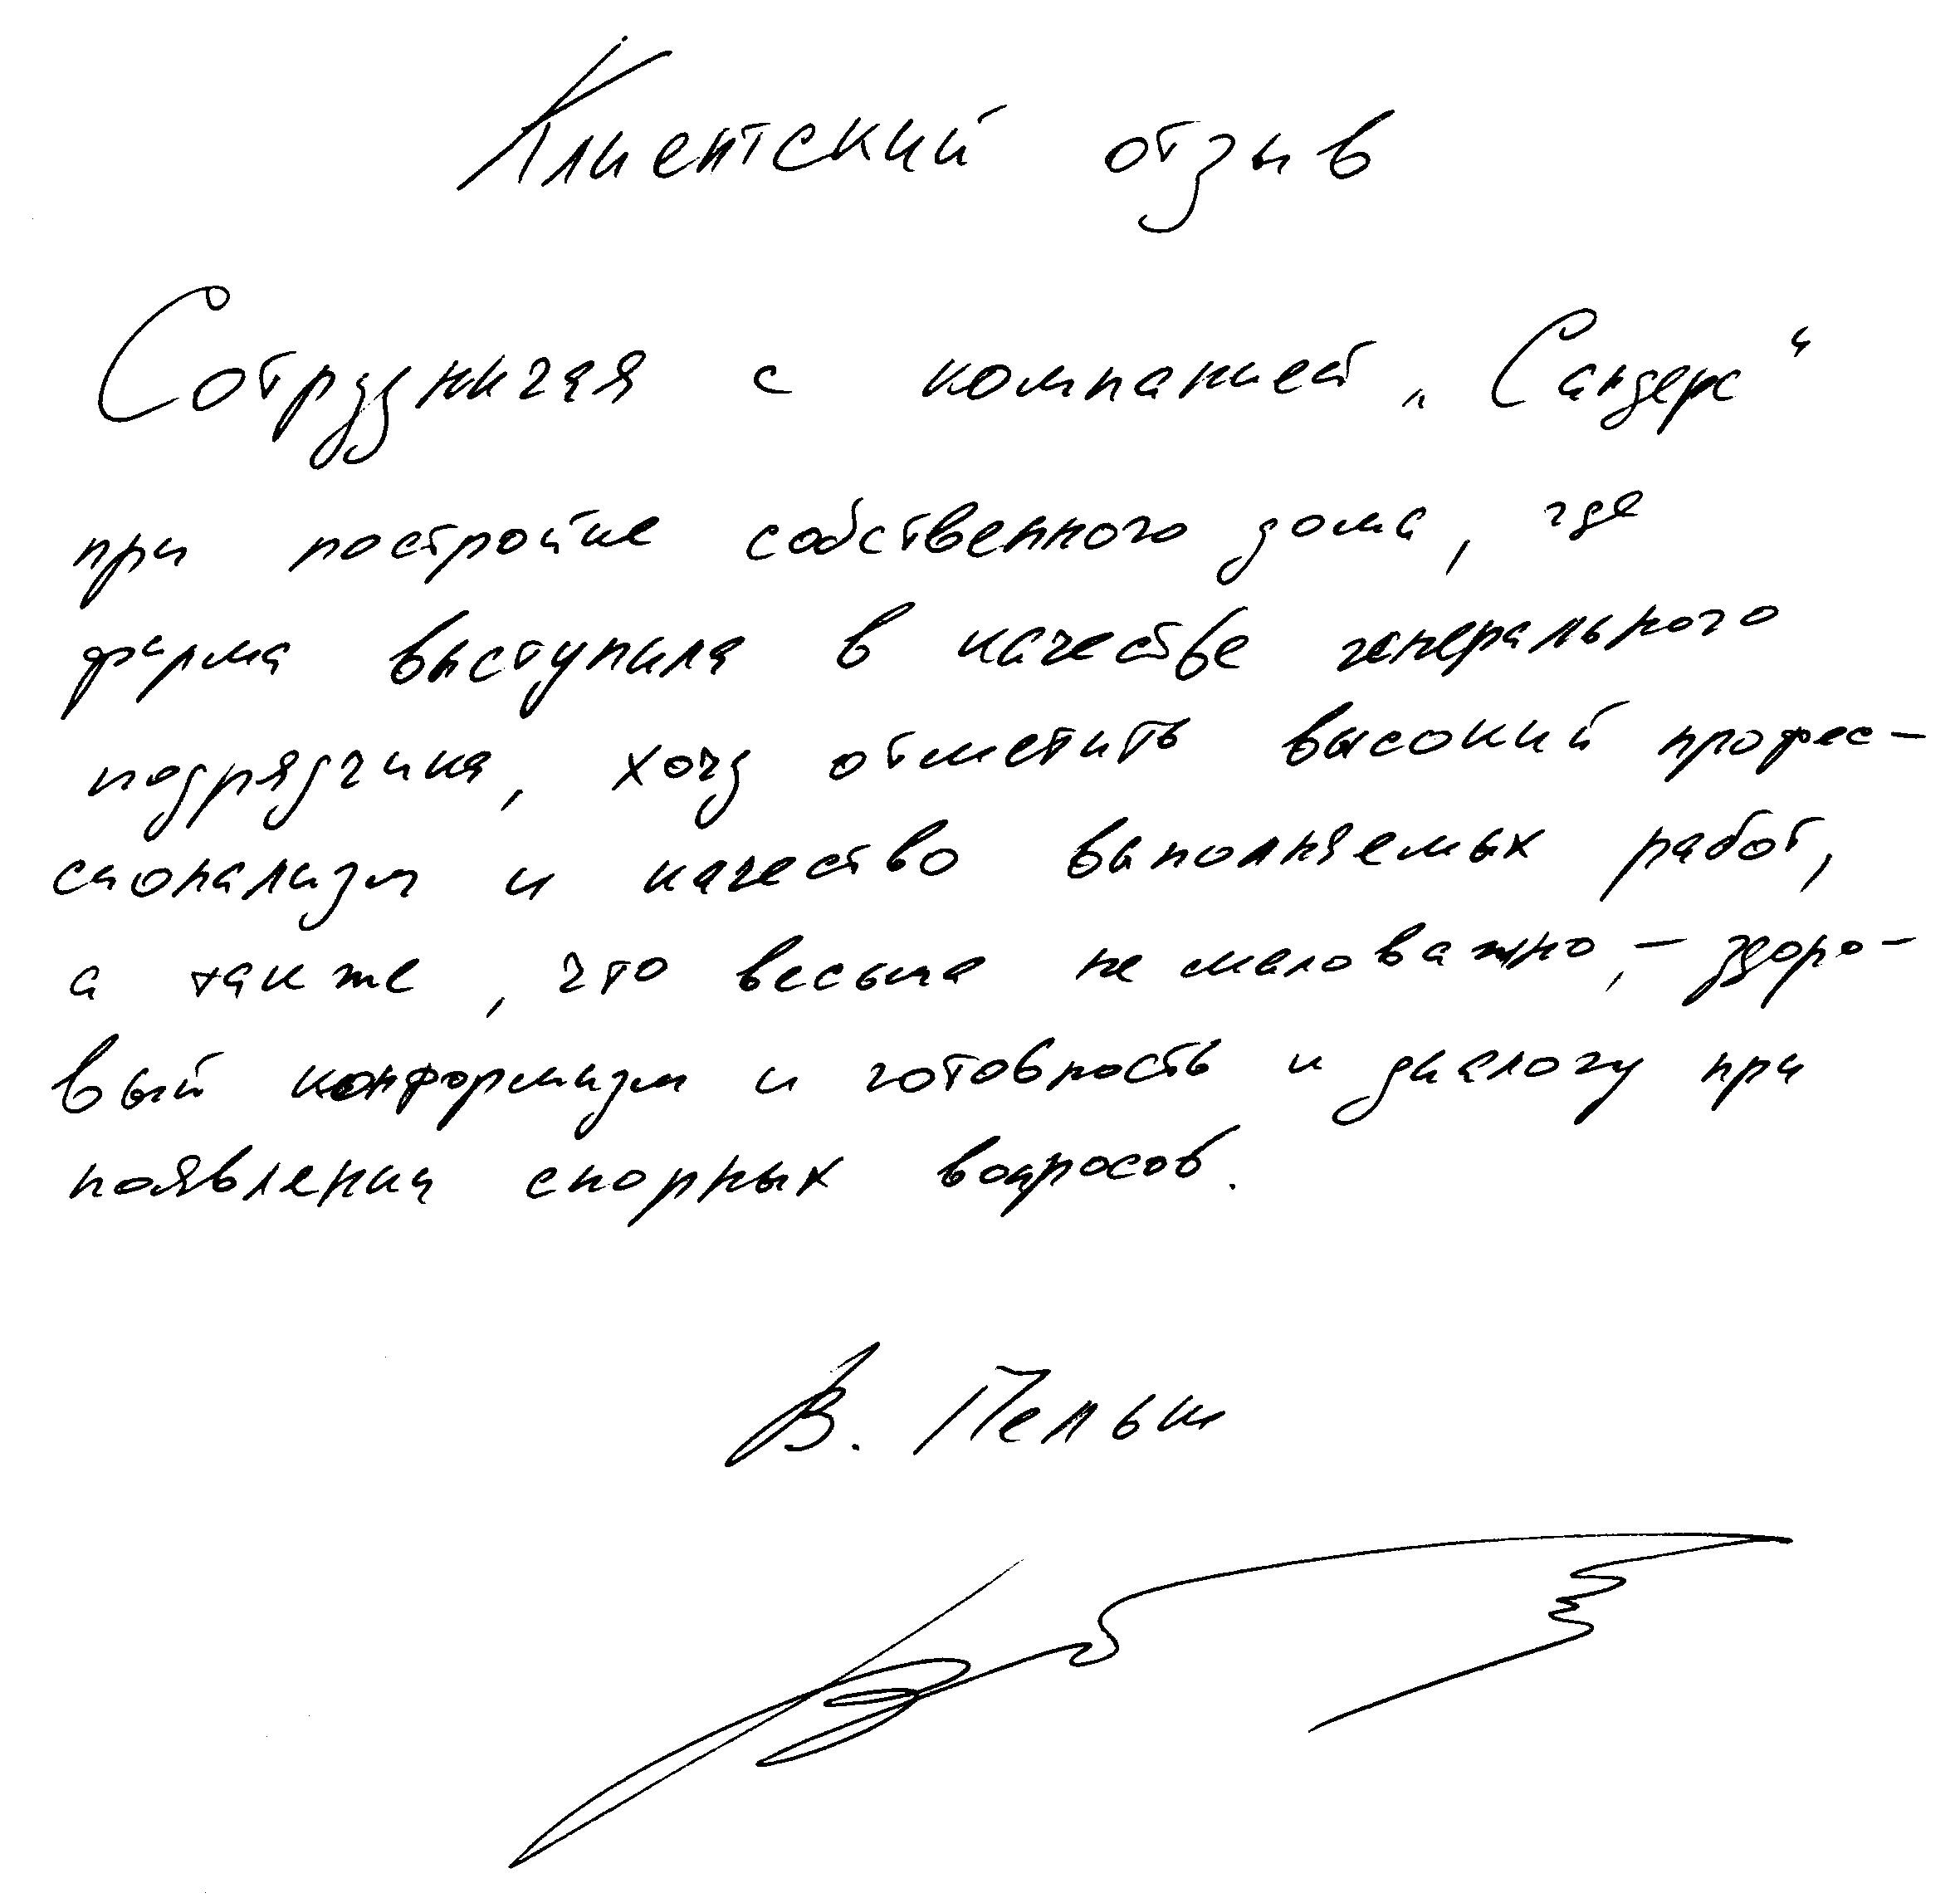 Клиентский отзыв
Сотрудничая с компанией „Сандерс“
при постройке собственного дома, где
фирма выступила в качестве генерального
подрядчика, хочу отметить высокий профес-
сионализм и качество выполняемых работ,
а так же, что весьма не маловажно, - здоро-
вый конформизм и готовность к диалогу при
появлении спорных вопросов.
В. Пельш